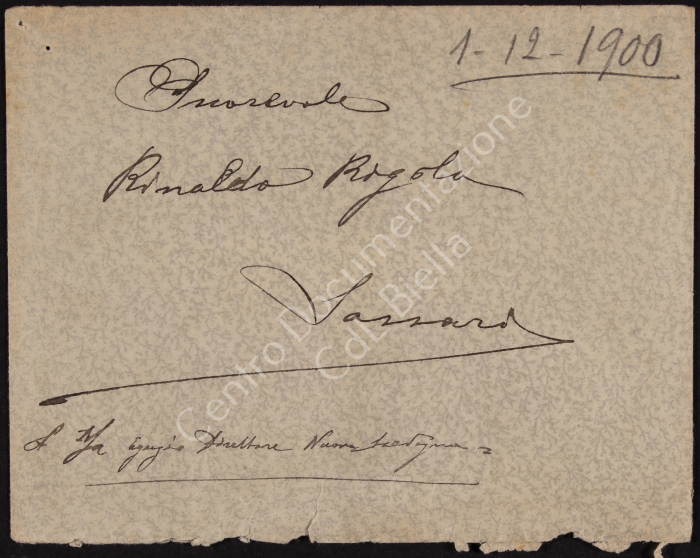 1-12-1900
Onorevole
Rinaldo Rigola
Sassari
A Mza Egregio Direttore Nuova Sardegna
Centro Documentazione
CdL Biella